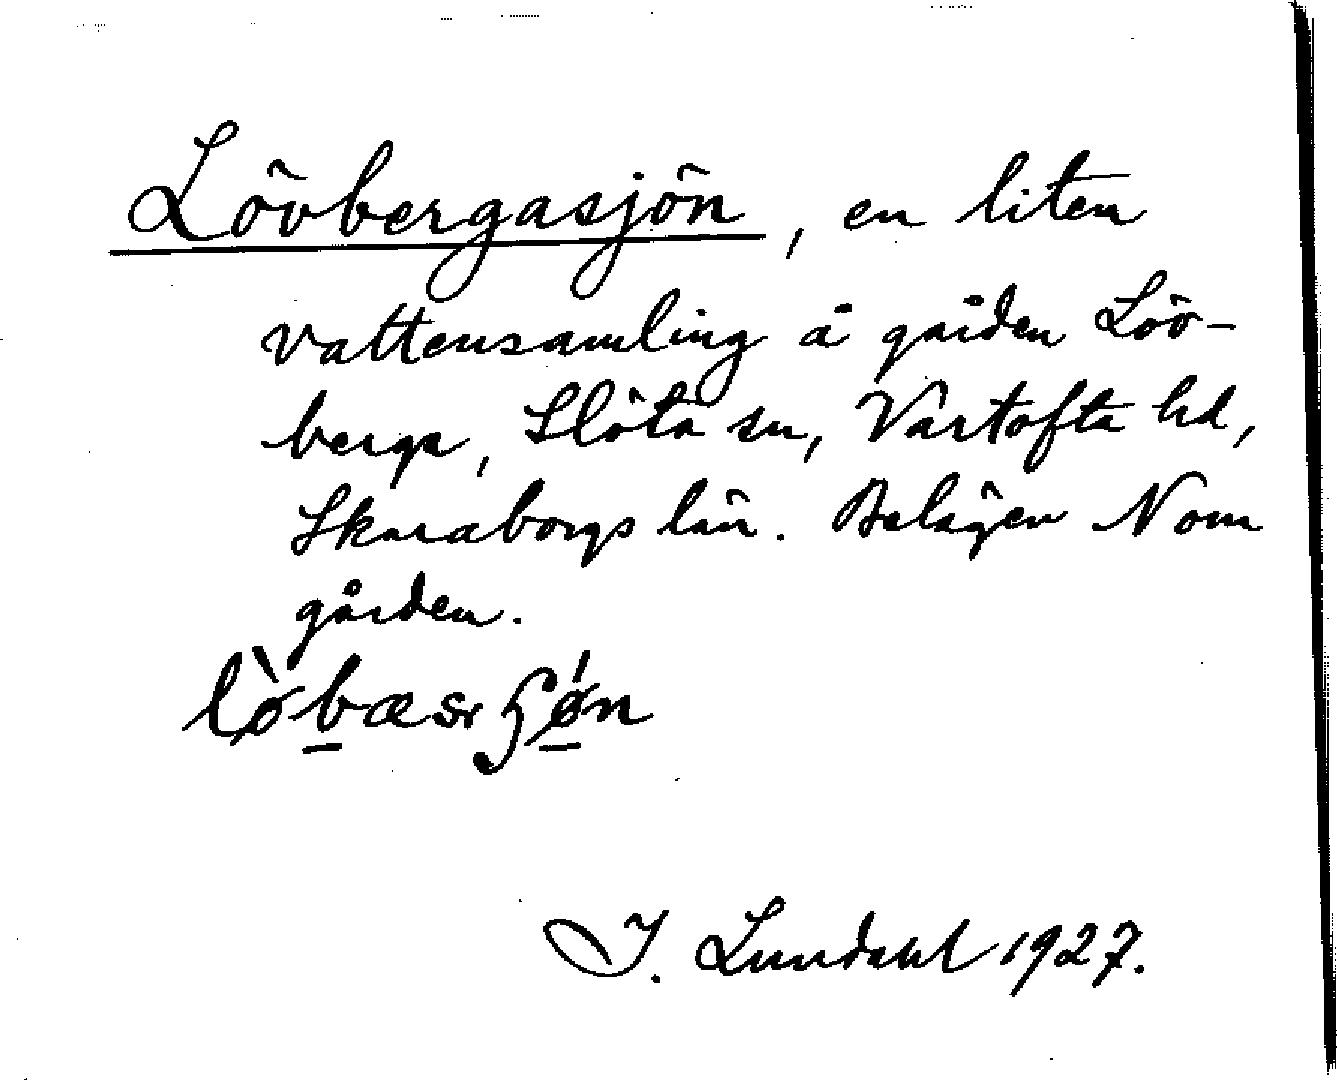 Lövbergasjön, en liten
vattensamling å gården Löv-
berga, Slöta sn, Vartofta hd,
Skaraborgs län. Belägen N om
gården.
I. Lundahl 1927.